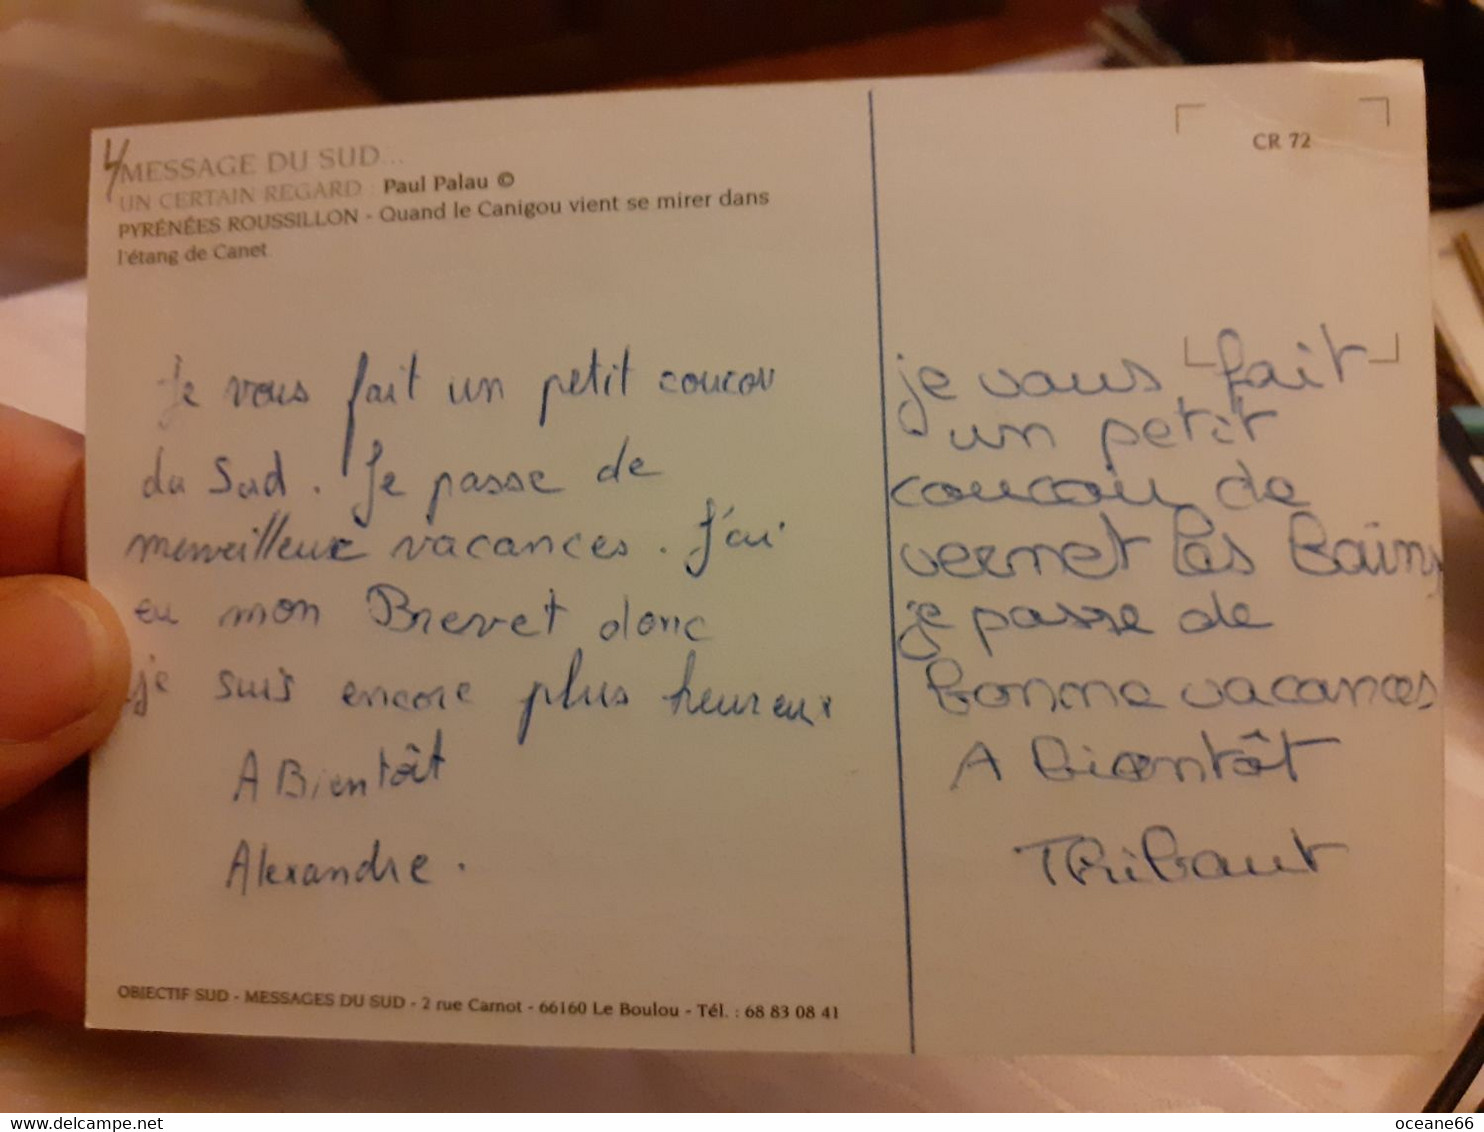 4
MESSAGE DU SUD...
UN CERTAIN REGARD : Paul Palau ©
PYRÉNÉES ROUSSILLON - Quand le Canigou vient se mirer dans
l'étang de Canet
CR 72
Je vous fait un petit coucou
du Sud. Je passe de
merveilleux vacances. J'ai
eu mon Brevet donc
je suis encore plus heureux
A Bientôit
Alexandre.
je vous fait
un petit
coucou de
vernet les Bains
je passe de
bonne vacances
A Bientôt
Thibaut
OBJECTIF SUD - MESSAGES DU SUD - 2 rue Carnot - 66160 Le Boulou - Tél. : 68 83 08 41
www.delcampe.net
oceane66